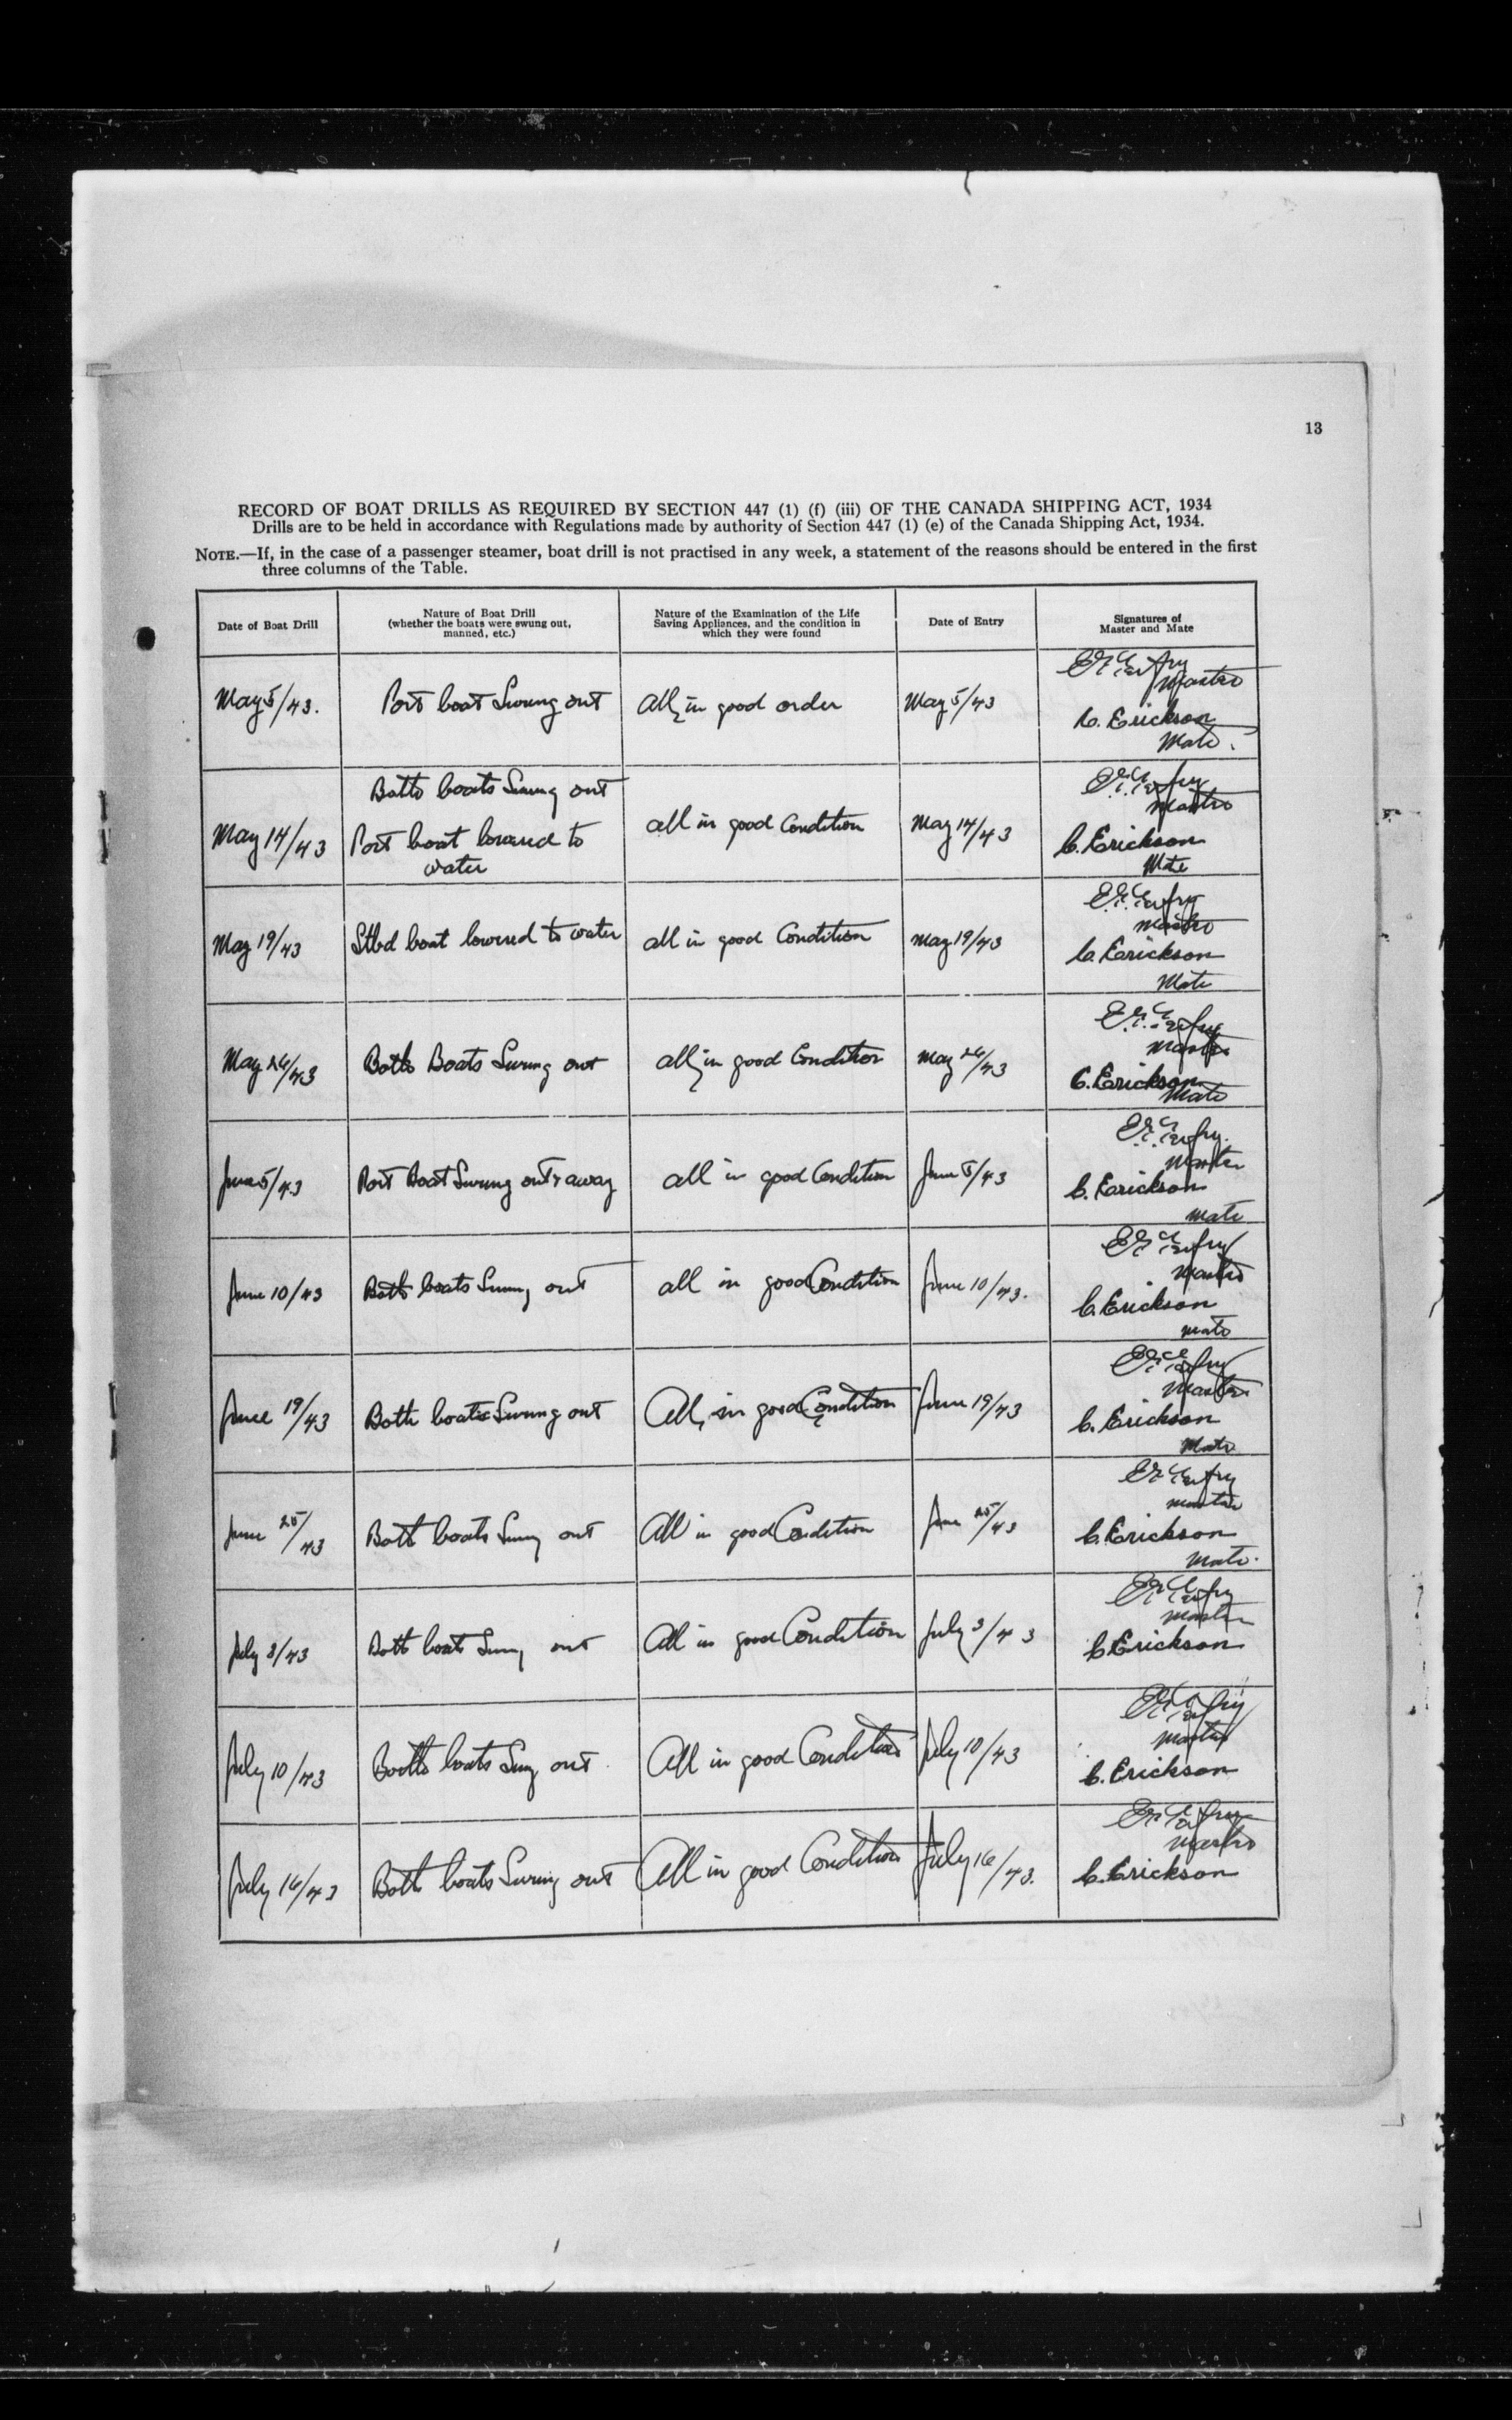 13
RECORD OF BOAT DRILLS AS REQUIRED BY SECTION 447 (1) (f) (iii) OF THE CANADA SHIPPING ACT, 1934
Drills are to be held in accordance with Regulations made by authority of Section 447 (1) (e) of the Canada Shipping Act, 1934.
NOTE.—If, in the case of a passenger steamer, boat drill is not practised in any week, a statement of the reasons should be entered in the first
three columns of the Table.
Date of Boat Drill
Nature of Boat Drill
(whether the boats were swung out,
manned, etc.)
Nature of the Examination of the Life
Saving Appliances, and the condition in
which they were found
Date of Entry
Signatures of
Master and Mate
May 5/43.
Port boat Swung out
All in good order
May 5/43
Master
C. Erickson
Mate.
May 14/43
Both boats Swung out
Port boat lowered to
water
all in good Condition
May 14/43
Master
C. Erickson
Mate
May 19/43
Stbd boat lowered to water
all in good Condition
May 19/43
Master
C. Erickson
Mate
May 26/43
Both Boats Swung out
all in good Condition
May 26/43
Master
C. Erickson
Mate
June 5/43
Port Boat Swung out & away
all in good Condition
June 5/43
Master
C. Erickson
Mate
June 10/43
Both boats Swung out
all in good Condition
June 10/43.
Master
C. Erickson
Mate
June 19/43
Both boats Swung out
All in good Condition
June 19/43
Master
C. Erickson
Mate
June 25/43
Both boats Swung out
All in good Condition
June 25/43
Master
C. Erickson
Mate.
July 3/43
Both boats Swung out
All in good Condition
July 3/43
Master
C. Erickson
July 10/43
Both boats Swung out
All in good Condition
July 10/43
Master
C. Erickson
July 16/43
Both boats Swung out
All in good Condition
July 16/43.
Master
C. Erickson